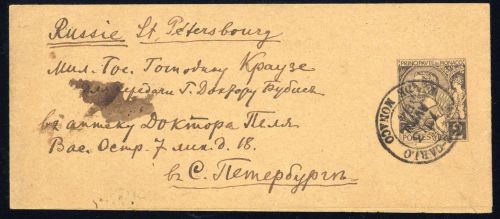 Russie St. Pétersbourg
Мил. Гос. Господину Краузе
для передачи Г. Доктору Рубис
въ аптеку Доктора Пеля
Вас. Остр. 7 лин. д. 18.
въ С. Петербургѣ
PRINCIPAUTÉ DE MONACO
POSTES
MONACO
MONTE-CARLO